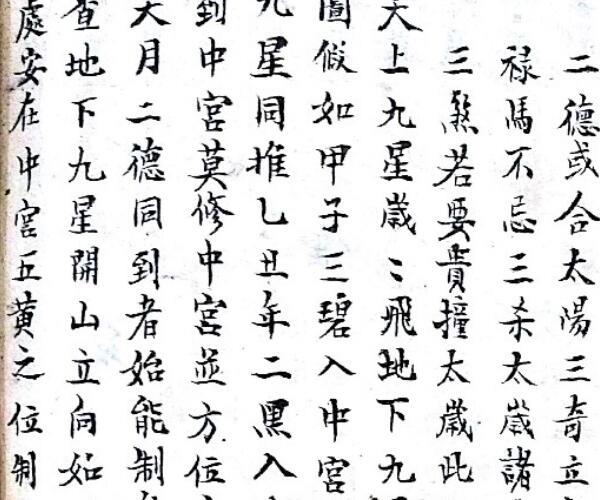 二德或合太陽三奇立
祿馬不忌三杀太歲諸
三煞若要貴撞太歲此
天上九星歲〻飛地下九
圖假如甲子三碧入中宮
九星同推乙丑年二黑入
到中宮莫修中宮並方位
天月二德同到者始能制
查地下九星開山立向如
處安在中宮五黃之位制